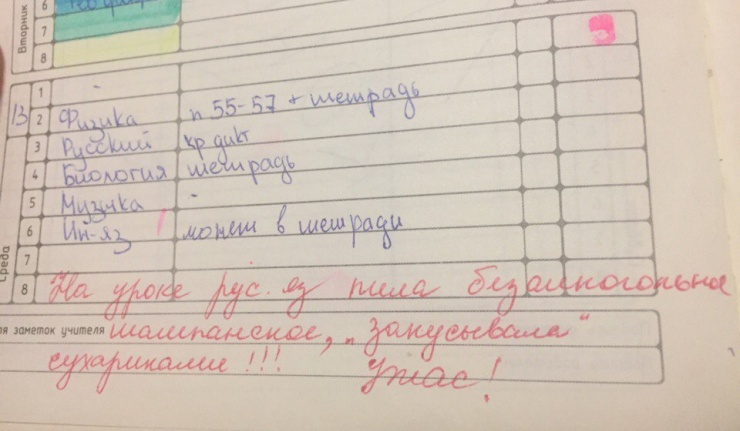 Вторник
6
7
8
13
1 -
2 Физика п 55-57 + тетрадь
3 Русский кр дикт
4 Биология тетрадь
5 Музыка -
6 Ин-яз монет в тетради
7
Среда
8 На уроке рус. яз пила безалкогольное
заметок учителя шампанское, „закусывала“
сухариками!!! Ужас!